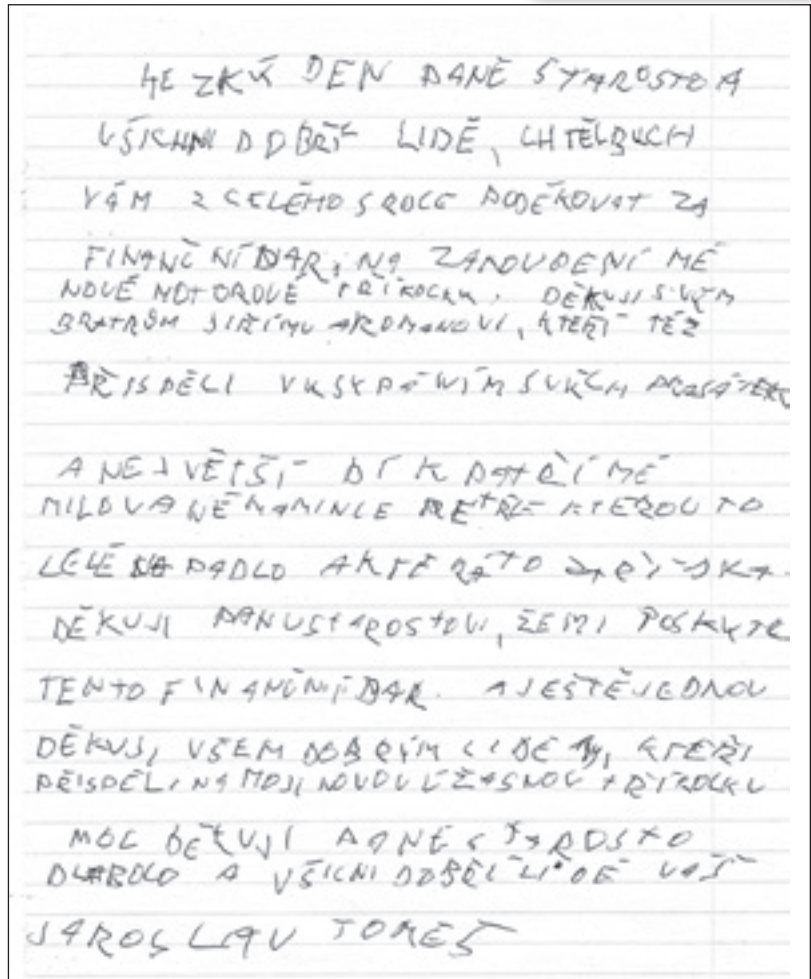 HEZKÝ DEN PANE STAROSTO A
VŠICHNI DOBŘÍ LIDÉ, CHTĚLBYCH
VÁM Z CELÉHO SRDCE PODĚKOVAT ZA
FINANČNÍ DAR, NA ZAKOUPENÍ MÉ
NOVÉ MOTOROVÉ TŘÍKOLKY. DĚKUJI SVÝM
BRATRŮM JIŘÍMU A ROMANOVI, KTEŘÍ TÉŽ
PŘISPĚLI
A NEJVĚTŠÍ DÍK PATŘÍ MÉ
MILOVANÉ MAMINCE PETŘE KTEROU TO
CELÉ NAPADLO A KTERÁ TO ZAŘÍDILA.
DĚKUJI PANU STAROSTOVI, ŽE MI POSKYTL
TENTO FINANČNÍ DAR. A JEŠTĚ JEDNOU
DĚKUJI VŠEM DOBRÝM LIDEM, KTEŘÍ
PŘISPĚLI NA MOJI NOVOU ÚŽASNOU TŘÍKOLKU
MOC DĚKUJI PANE STAROSTO
A VŠICNI DOBŘÍ LIDÉ VÁŠ
JAROSLAV TOMEŠ